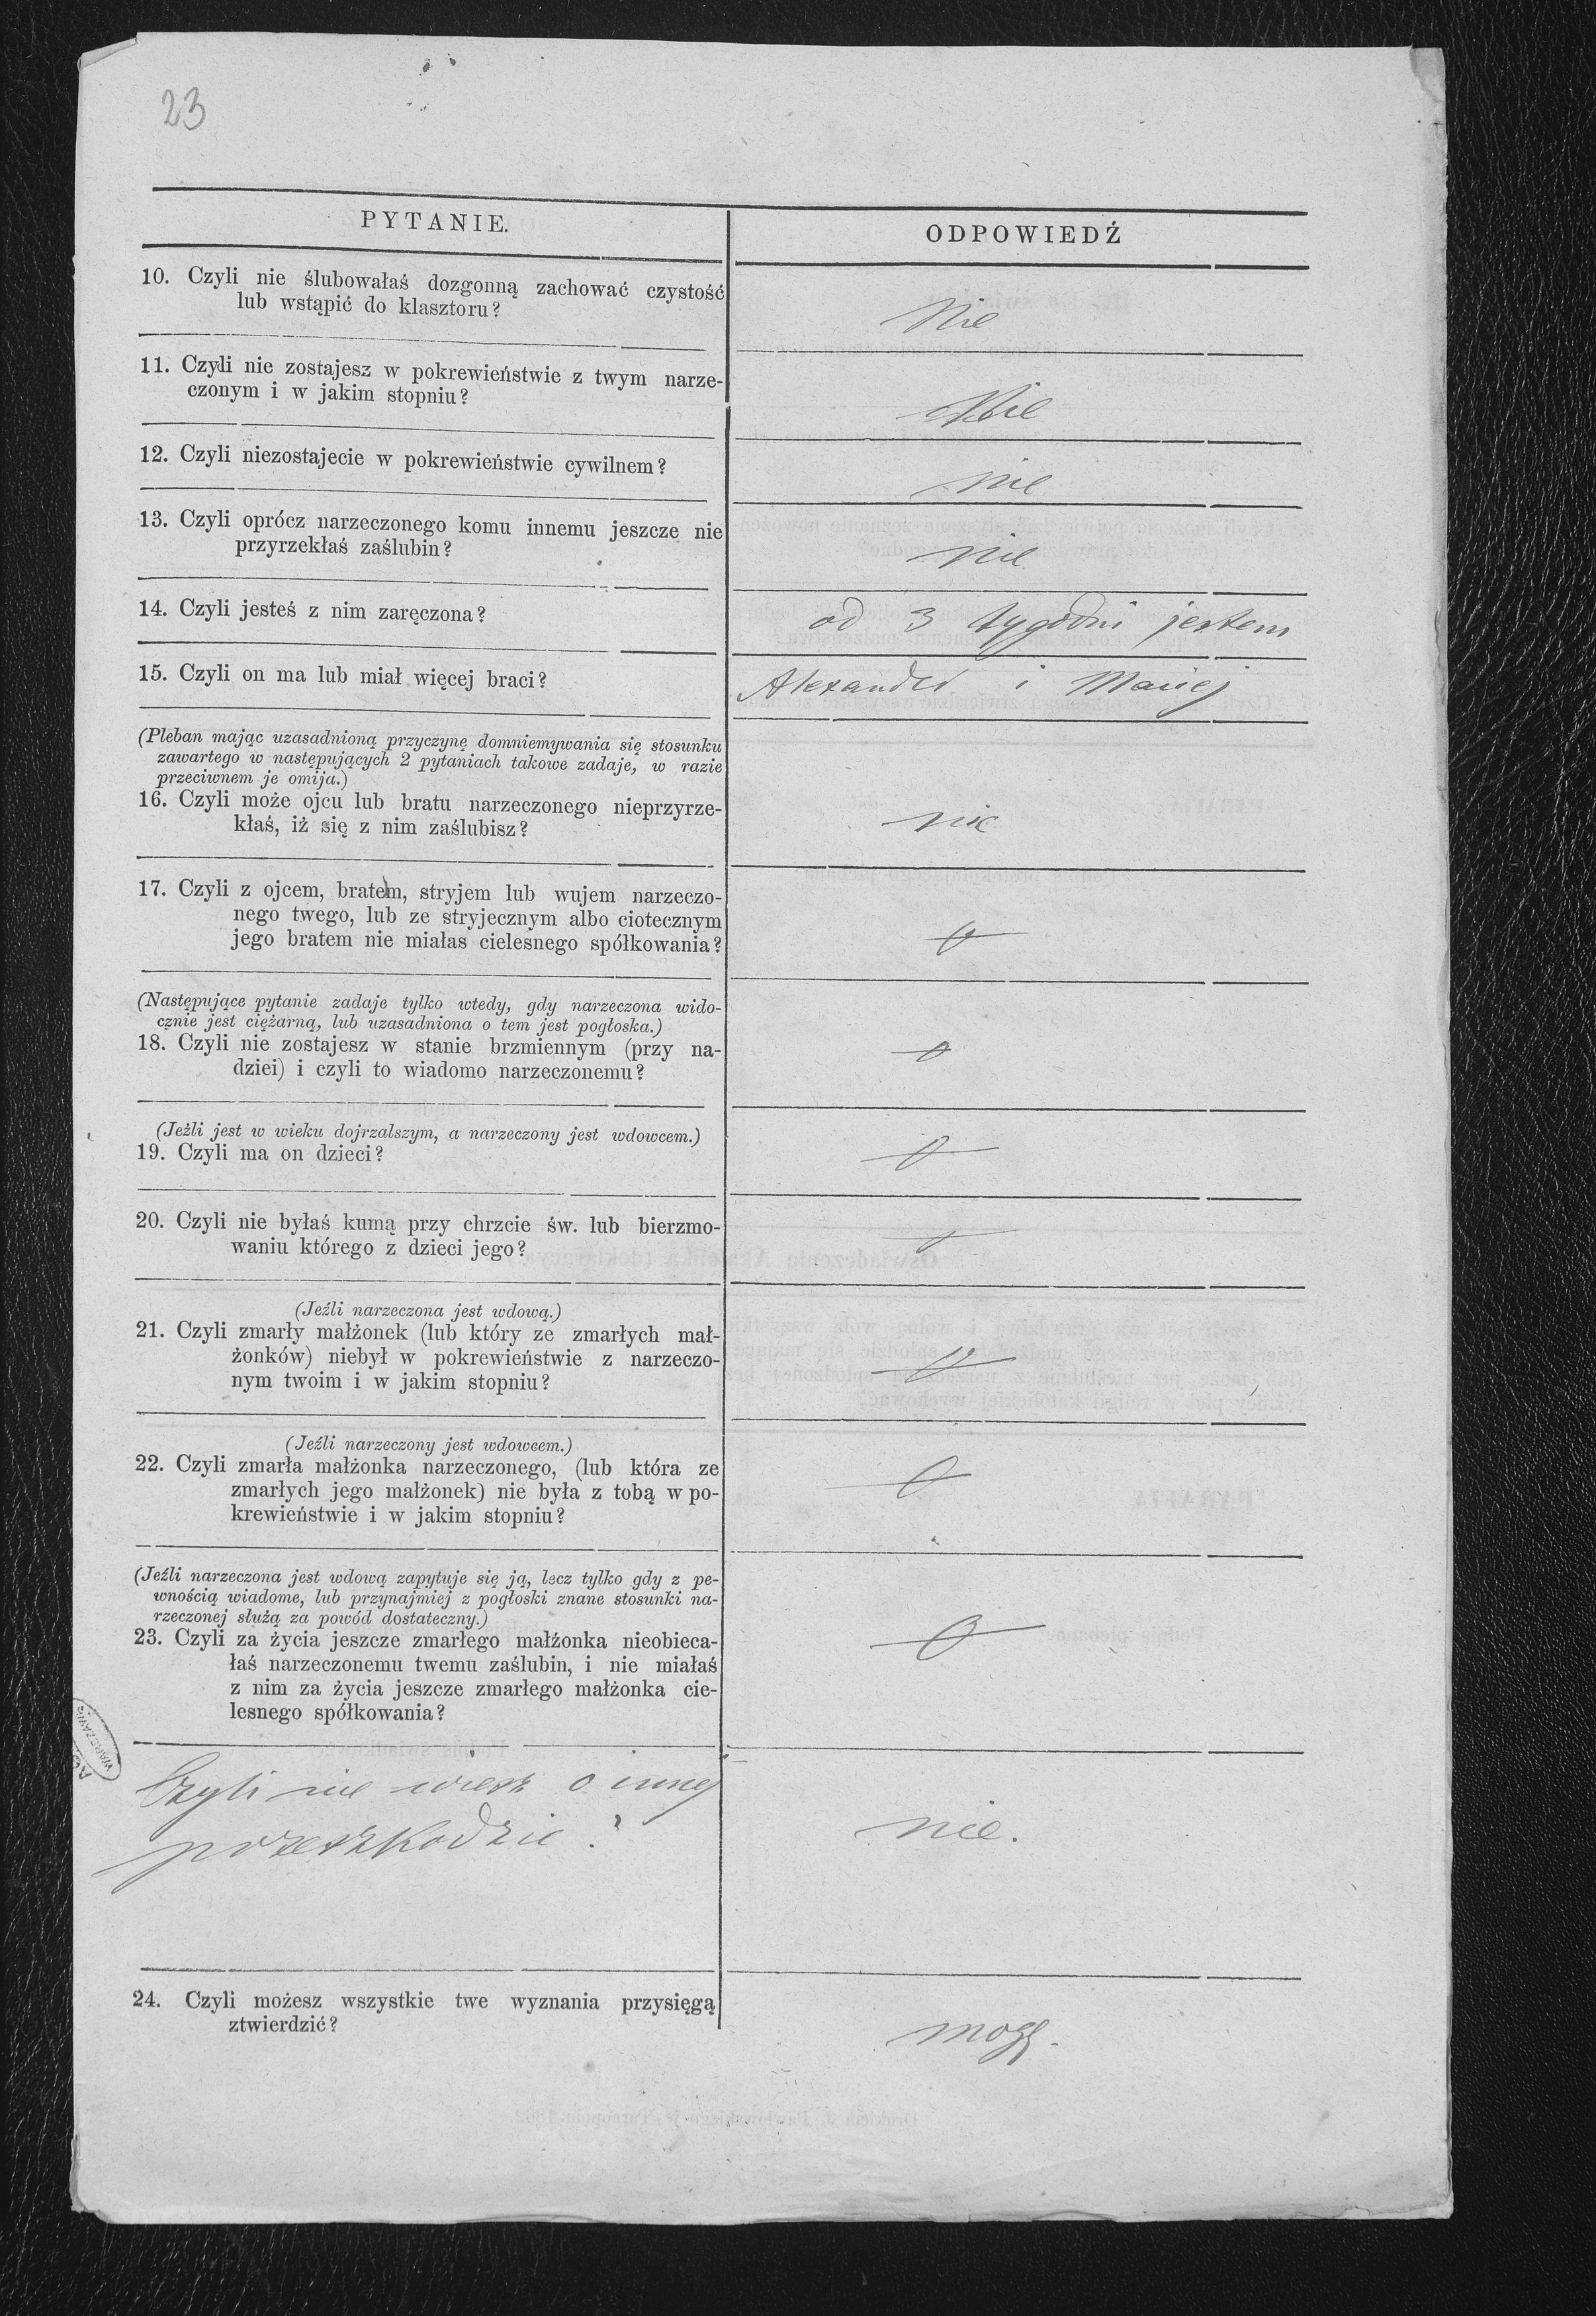 23
PYTANIE.
ODPOWIEDŹ
10. Czyli nie ślubowałaś dozgonną zachować czystość
lub wstąpić do klasztoru?
Nie
11. Czyli nie zostajesz w pokrewieństwie z twym narze-
czonym i w jakim stopniu?
Nie
12. Czyli niezostajecie w pokrewieństwie cywilnem?
nie
13. Czyli oprócz narzeczonego komu innemu jeszcze nie
przyrzekłaś zaślubin?
nie
14. Czyli jesteś z nim zaręczona?
od 3 tygodni jestem
15. Czyli on ma lub miał więcej braci?
Alexander i Maciej
(Pleban mając uzasadnioną przyczynę domniemywania się stosunku
zawartego w następujących 2 pytaniach takowe zadaje, w razie
przeciwnem je omija.)
16. Czyli może ojcu lub bratu narzeczonego nieprzyrze-
kłaś, iż się z nim zaślubisz?
nie
17. Czyli z ojcem, bratem, stryjem lub wujem narzeczo-
nego twego, lub ze stryjecznym albo ciotecznym
jego bratem nie miałas cielesnego spółkowania?
(Następujące pytanie zadaje tylko wtedy, gdy narzeczona wido-
cznie jest ciężarną, lub uzasadniona o tem jest pogłoska.)
18. Czyli nie zostajesz w stanie brzmiennym (przy na-
dziei) i czyli to wiadomo narzeczonemu?
(Jeźli jest w wieku dojrzalszym, a narzeczony jest wdowcem.)
19. Czyli ma on dzieci?
20. Czyli nie byłaś kumą przy chrzcie św. lub bierzmo-
waniu którego z dzieci jego?
(Jeźli narzeczona jest wdową.)
21. Czyli zmarły małżonek (lub który ze zmarłych mał-
żonków) niebył w pokrewieństwie z narzeczo-
nym twoim i w jakim stopniu?
(Jeźli narzeczony jest wdowcem.)
22. Czyli zmarła małżonka narzeczonego, (lub która ze
zmarłych jego małżonek) nie była z tobą w po-
krewieństwie i w jakim stopniu?
(Jeźli narzeczona jest wdową zapytuje się ją, lecz tylko gdy z pe-
wnością wiadome, lub przynajmiej z pogłoski znane stosunki na-
rzeczonej służą za powód dostateczny.)
23. Czyli za życia jeszcze zmarłego małżonka nieobieca-
łaś narzeczonemu twemu zaślubin, i nie miałaś
z nim za życia jeszcze zmarłego małżonka cie-
lesnego spółkowania?
Czyli nie wiesz o innej
przeszkodzie?
nie.
24. Czyli możesz wszystkie twe wyznania przysięgą
ztwierdzić?
mogę.
WARSZAWIE